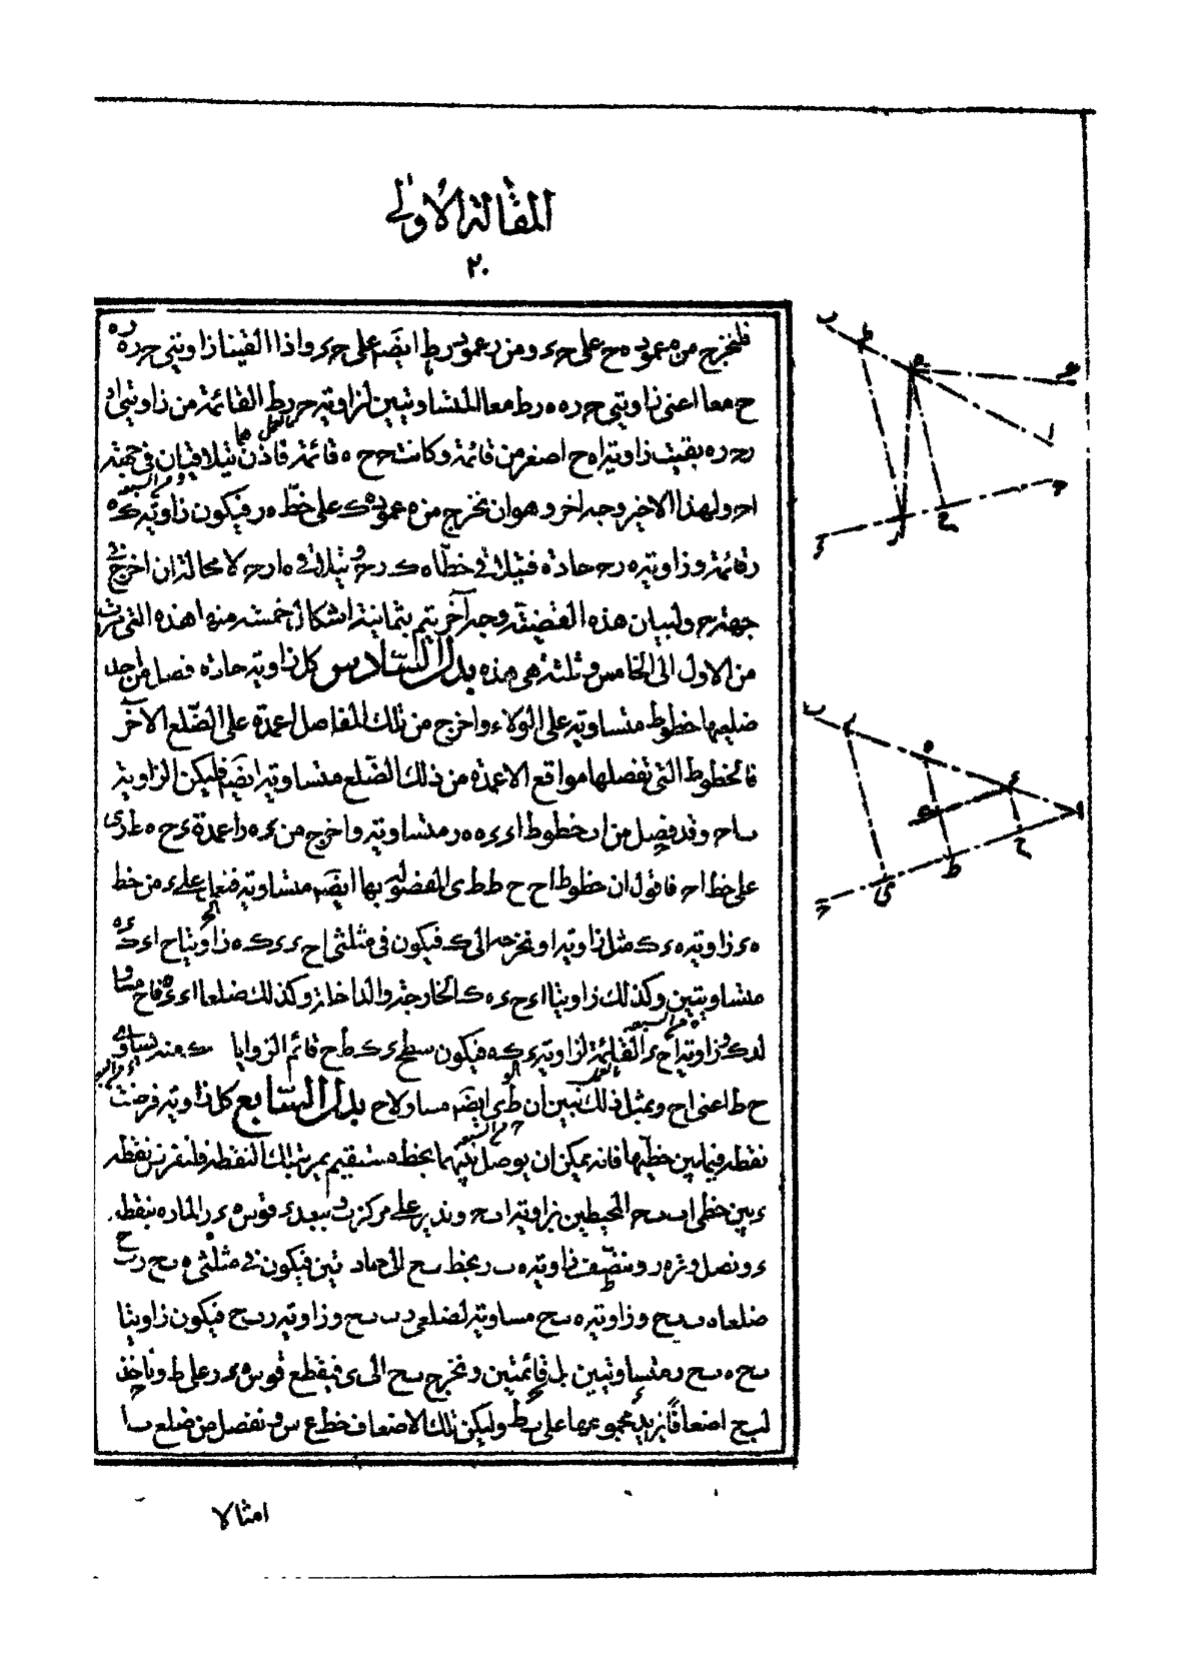 المقالة الاولى
٢٠
فلنخرج من ه عمود ه ح على ح ء ومن ر عمود ر ط ايضه على ح ء واذا القينا زاويتي ح ر ه
ح معا اعنى زاويتي ح ر ه ه ر ط معا المتساويتين لزاوية ح ر ط القائمة من زاويتي ا ه
ر ح ر ه بقيت زاوية ا ه ح اصغر من قائمة وكانت ح ح ه قائمة فاذن يتلاقيان في جهة
ا ح ولهذا الاخير وجه اخر وهو ان نخرج من ه عمود ه ك على خط ه ر فيكون زاوية ك ه
ر قائمة وزاوية ه ر ح حادة فيتلاقى خطا ه ك ر ح ويتلاقى ه ا ر ح لا محالة ان اخرج في
جهة ح ولبيان هذه القضية وجه آخر يتم بثمانية اشكال خمسة منها هذه التى مرت
من الاول الى الخامس وثلثة هى هذه بدل السادس كل زاوية حادة فصل من احد
ضلعيها خطوط متساوية على الولاء واخرج من تلك المفاصل اعمدة على الضلع الآخر
فالخطوط التى تفصلها مواقع الاعمدة من ذلك الضلع متساوية ايضه فليكن الزاوية
ب ا ح وقد فصل من ا ب خطوط ا ء ء ه ه ر متساوية واخرج من ء ه ر اعمدة ء ح ه ط ر ى
على خط ا ح فاقول ان خطوط ا ح ح ط ط ى المفصولة بها ايضه متساوية فنعمل على ء من خط
ه ء زاوية ه ء ك مثل زاوية ا ونخرجه الى ك فيكون في مثلثى ا ح ء ء ك ه زاويتا ح ا ء ك ء ه
متساويتين وكذلك زاويتا ا ء ح ء ه ك الخارجة والداخلة وكذلك ضلعا ا ء ء ه فا ح مساو
لء ك وزاوية ا ح ء القائمة لزاوية ء ك ه فيكون سطح ء ك ط ح قائم الزوايا ء ك منه يساوى
ح ط اعنى ا ح وبمثل ذلك نبين ان ط ى ايضه مساو لا ح بدل السابع كل زاوية فرضت
نقطة فيما بين خطيها فانه يمكن ان يوصل بينهما بخط مستقيم يمر بتلك النقطة فلنفرض نقطة
ء بين خطى ا ب ب ح المحيطين بزاوية ا ب ح وندير على مركز ب وببعد ء قوس ه ء ر المارة بنقطة
ء ونصل وتر ه ر وننصف زاوية ه ب ر بخط ب ح الى حادتين فيكون في مثلثى ه ب ح ر ب ح
ضلعا ه ب ب ح وزاوية ه ب ح مساوية لضلعى ر ب ب ح وزاوية ر ب ح فيكون زاويتا
ب ح ه ب ح ر متساويتين بل قائمتين ونخرج ب ح الى ى فيقطع قوس ه ء ر على ط وناخذ
لب ح اضعافًا يزيد مجموعها على ب ط وليكن تلك الاضعاف خط ع س ونفصل من ضلع ب ا
امثالا